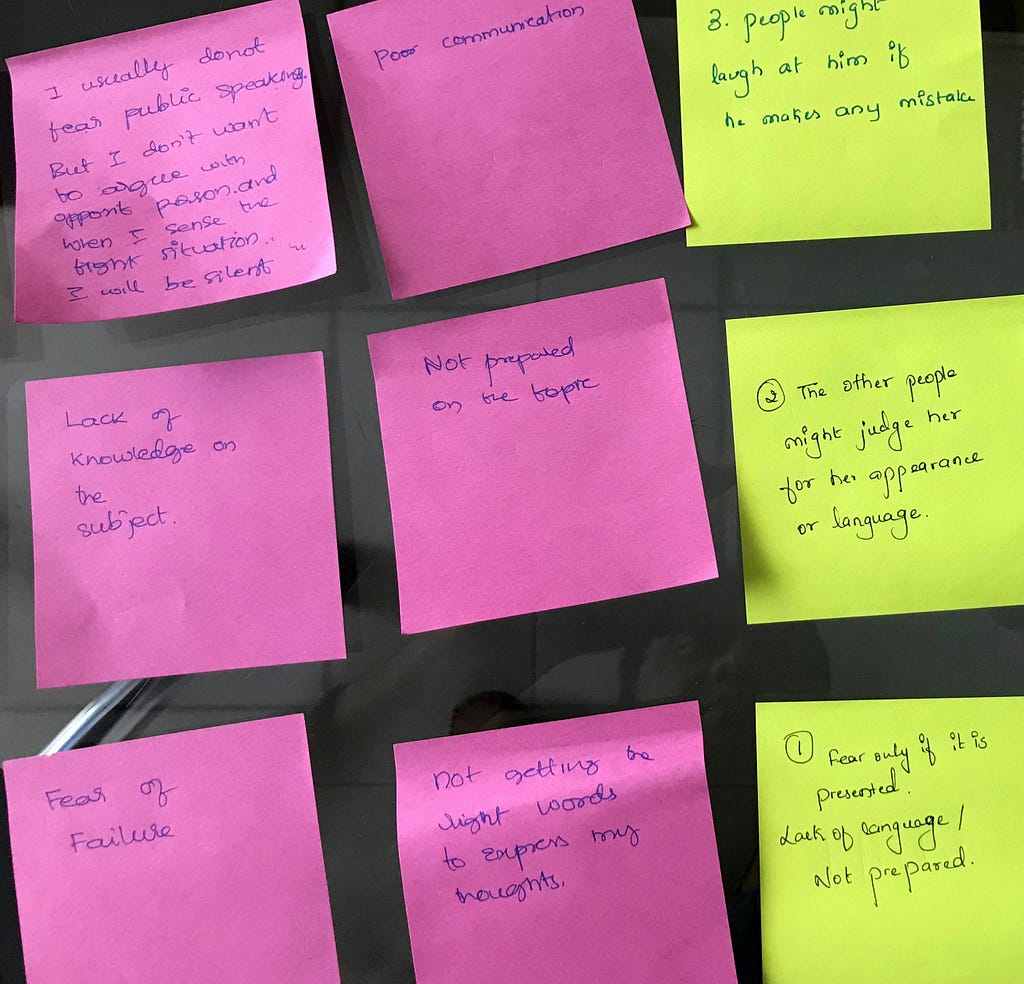 I usually donot
fear public speaking.
But I don't want
to argue with
oppont person. and
when I sense the
tight situation..
I will be silent
Poor communication
3. people might
laugh at him if
he makes any mistake
Lack of
knowledge on
the
subject.
Not prepared
on the topic
② The other people
might judge her
for her appearance
or language.
Fear of
Failure
Not getting the
right words
to express my
thoughts.
① Fear only if it is
presented.
Lack of language /
Not prepared.